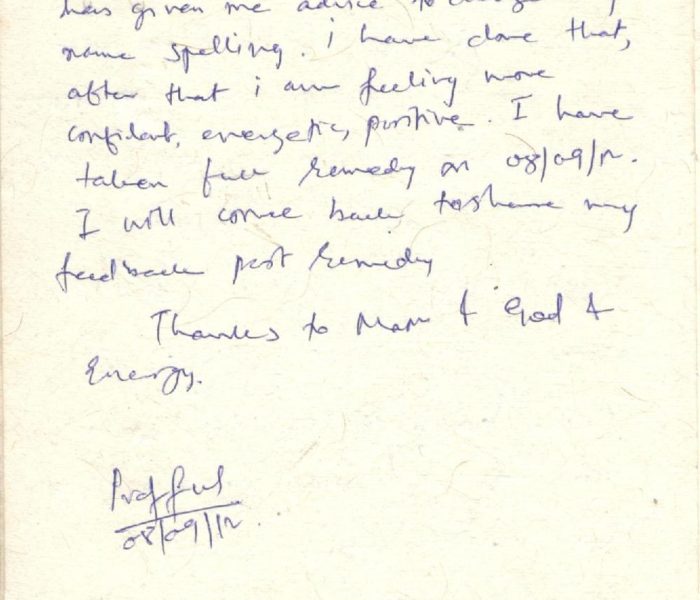 has given me advice to change my
name spelling. i have done that,
after that i am feeling more
confident, energetic, positive. I have
taken full remedy on 08/09/12.
I will come back to share my
feedback post remedy
Thanks to Mam & God &
Energy.
08/09/12.